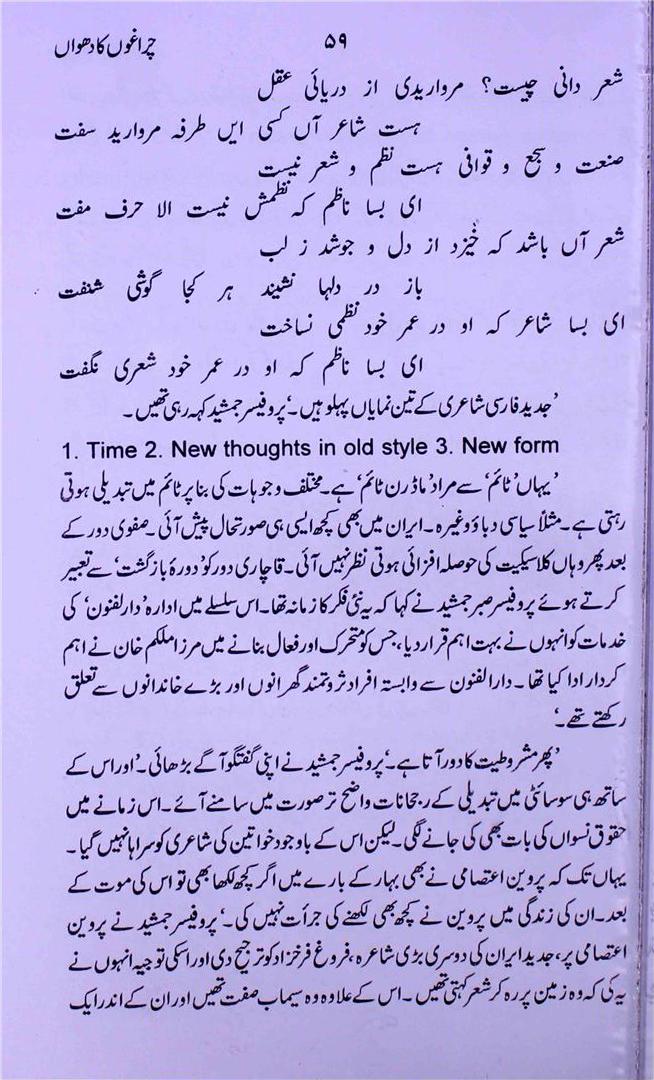 چراغوں کا دھواں
۵۹
شعر دانی چیست؟ مرواریدی از دریائی عقل
ہست شاعر آں کسی ایں طرفہ مروارید سفت
صنعت و سجع و قوافی ہست نظم و شعر نیست
ای بسا ناظم کہ نظمش نیست الا حرف مفت
شعر آں باشد کہ خیزد از دل و جوشد ز لب
باز در دلہا نشیند ہر کجا گوشی شنفت
ای بسا شاعر کہ او در عمر خود نظمی نساخت
ای بسا ناظم کہ او در عمر خود شعری نگفت
’جدید فارسی شاعری کے تین نمایاں پہلو ہیں۔‘ پروفیسر جمشید کہہ رہی تھیں۔
1. Time 2. New thoughts in old style 3. New form
’یہاں ’ٹائم‘ سے مراد ’ماڈرن ٹائم‘ ہے۔ مختلف وجوہات کی بنا پر ٹائم میں تبدیلی ہوتی
رہتی ہے۔ مثلاً سیاسی دباؤ وغیرہ۔ ایران میں بھی کچھ ایسی ہی صورتحال پیش آئی۔ صفوی دور کے
بعد پھر وہاں کلاسیکیت کی حوصلہ افزائی ہوتی نظر نہیں آئی۔ قاچاری دور کو ’دورۂ بازگشت‘ سے تعبیر
کرتے ہوئے پروفیسر صبر جمشید نے کہا کہ یہ نئی فکر کا زمانہ تھا۔ اس سلسلے میں ادارہ ’دارلفنون‘ کی
خدمات کو انہوں نے بہت اہم قرار دیا، جس کو متحرک اور فعال بنانے میں مرزا ملکم خان نے اہم
کردار ادا کیا تھا۔ دارالفنون سے وابستہ افراد ثروتمند گھرانوں اور بڑے خاندانوں سے تعلق
رکھتے تھے۔‘
’پھر مشروطیت کا دور آتا ہے۔‘ پروفیسر جمشید نے اپنی گفتگو آگے بڑھائی۔ ’اور اس کے
ساتھ ہی سوسائٹی میں تبدیلی کے رجحانات واضح تر صورت میں سامنے آئے۔ اس زمانے میں
حقوق نسواں کی بات بھی کی جانے لگی۔ لیکن اس کے باوجود خواتین کی شاعری کو سراہا نہیں گیا۔
یہاں تک کہ پروین اعتصامی نے بھی بہار کے بارے میں اگر کچھ لکھا بھی تو اس کی موت کے
بعد۔ ان کی زندگی میں پروین نے کچھ بھی لکھنے کی جرأت نہیں کی۔‘ پروفیسر جمشید نے پروین
اعتصامی پر، جدید ایران کی دوسری بڑی شاعرہ، فروغ فرخزاد کو ترجیح دی اور اسکی توجیہ انہوں نے
یہ کی کہ وہ زمین پر رہ کر شعر کہتی تھیں۔ اس کے علاوہ وہ سیماب صفت تھیں اور ان کے اندر ایک